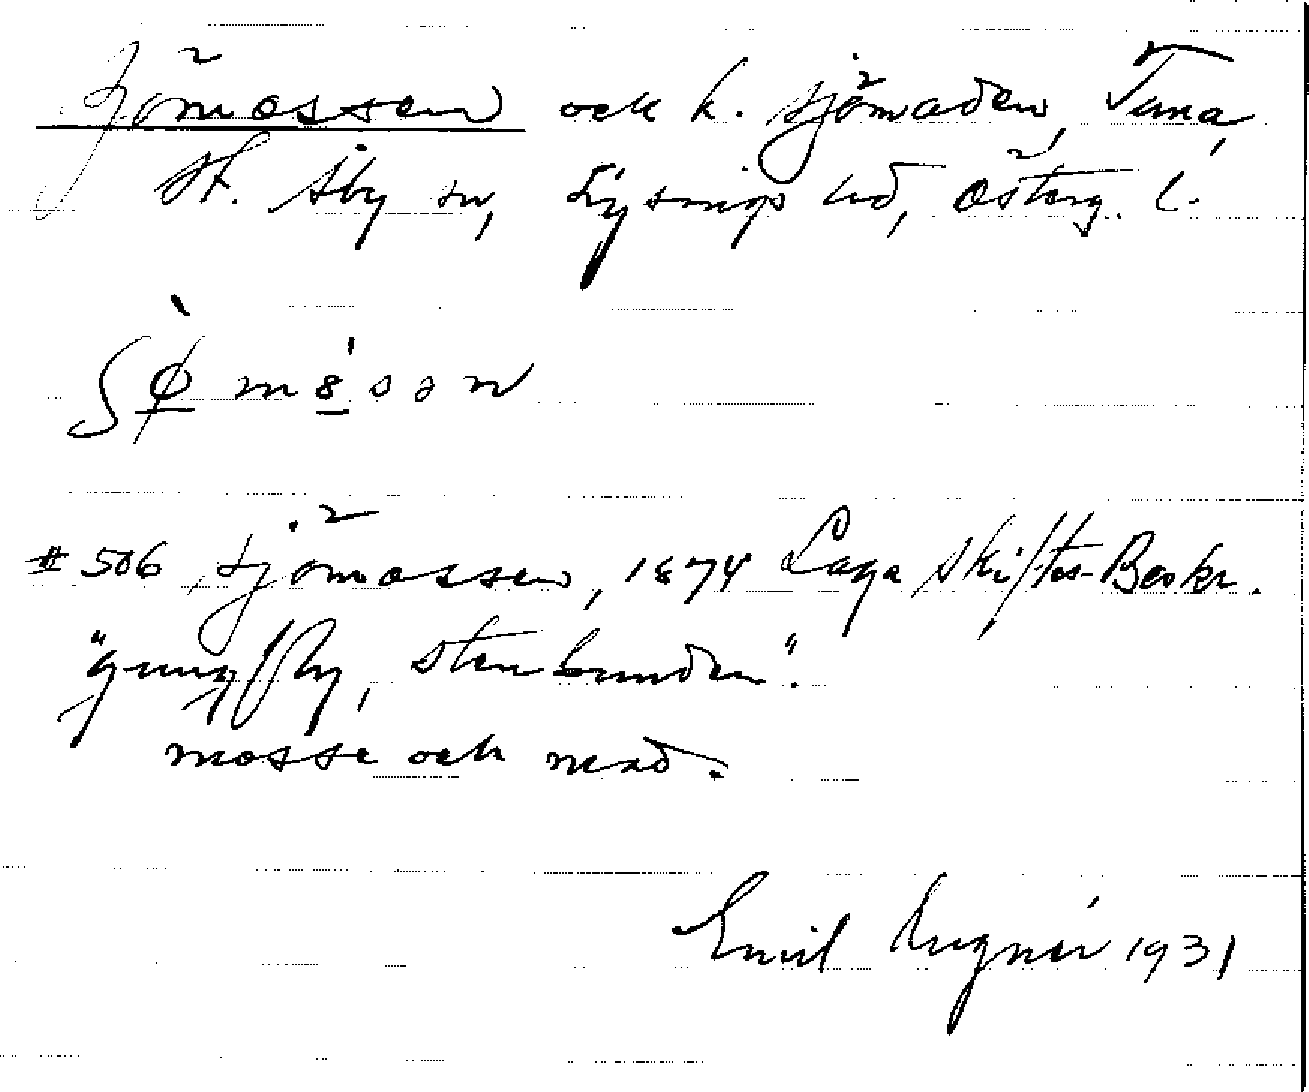 Sjömossen och k. Sjömaden, Tuna,
St. Åby sn, Lysings hd, Österg. l.
ʃø̀mósən
# 506 Sjömossen, 1874 Laga Skiftes-Beskr.
"gungfly, stenbunden".
mosse och mad.
Emil 1931